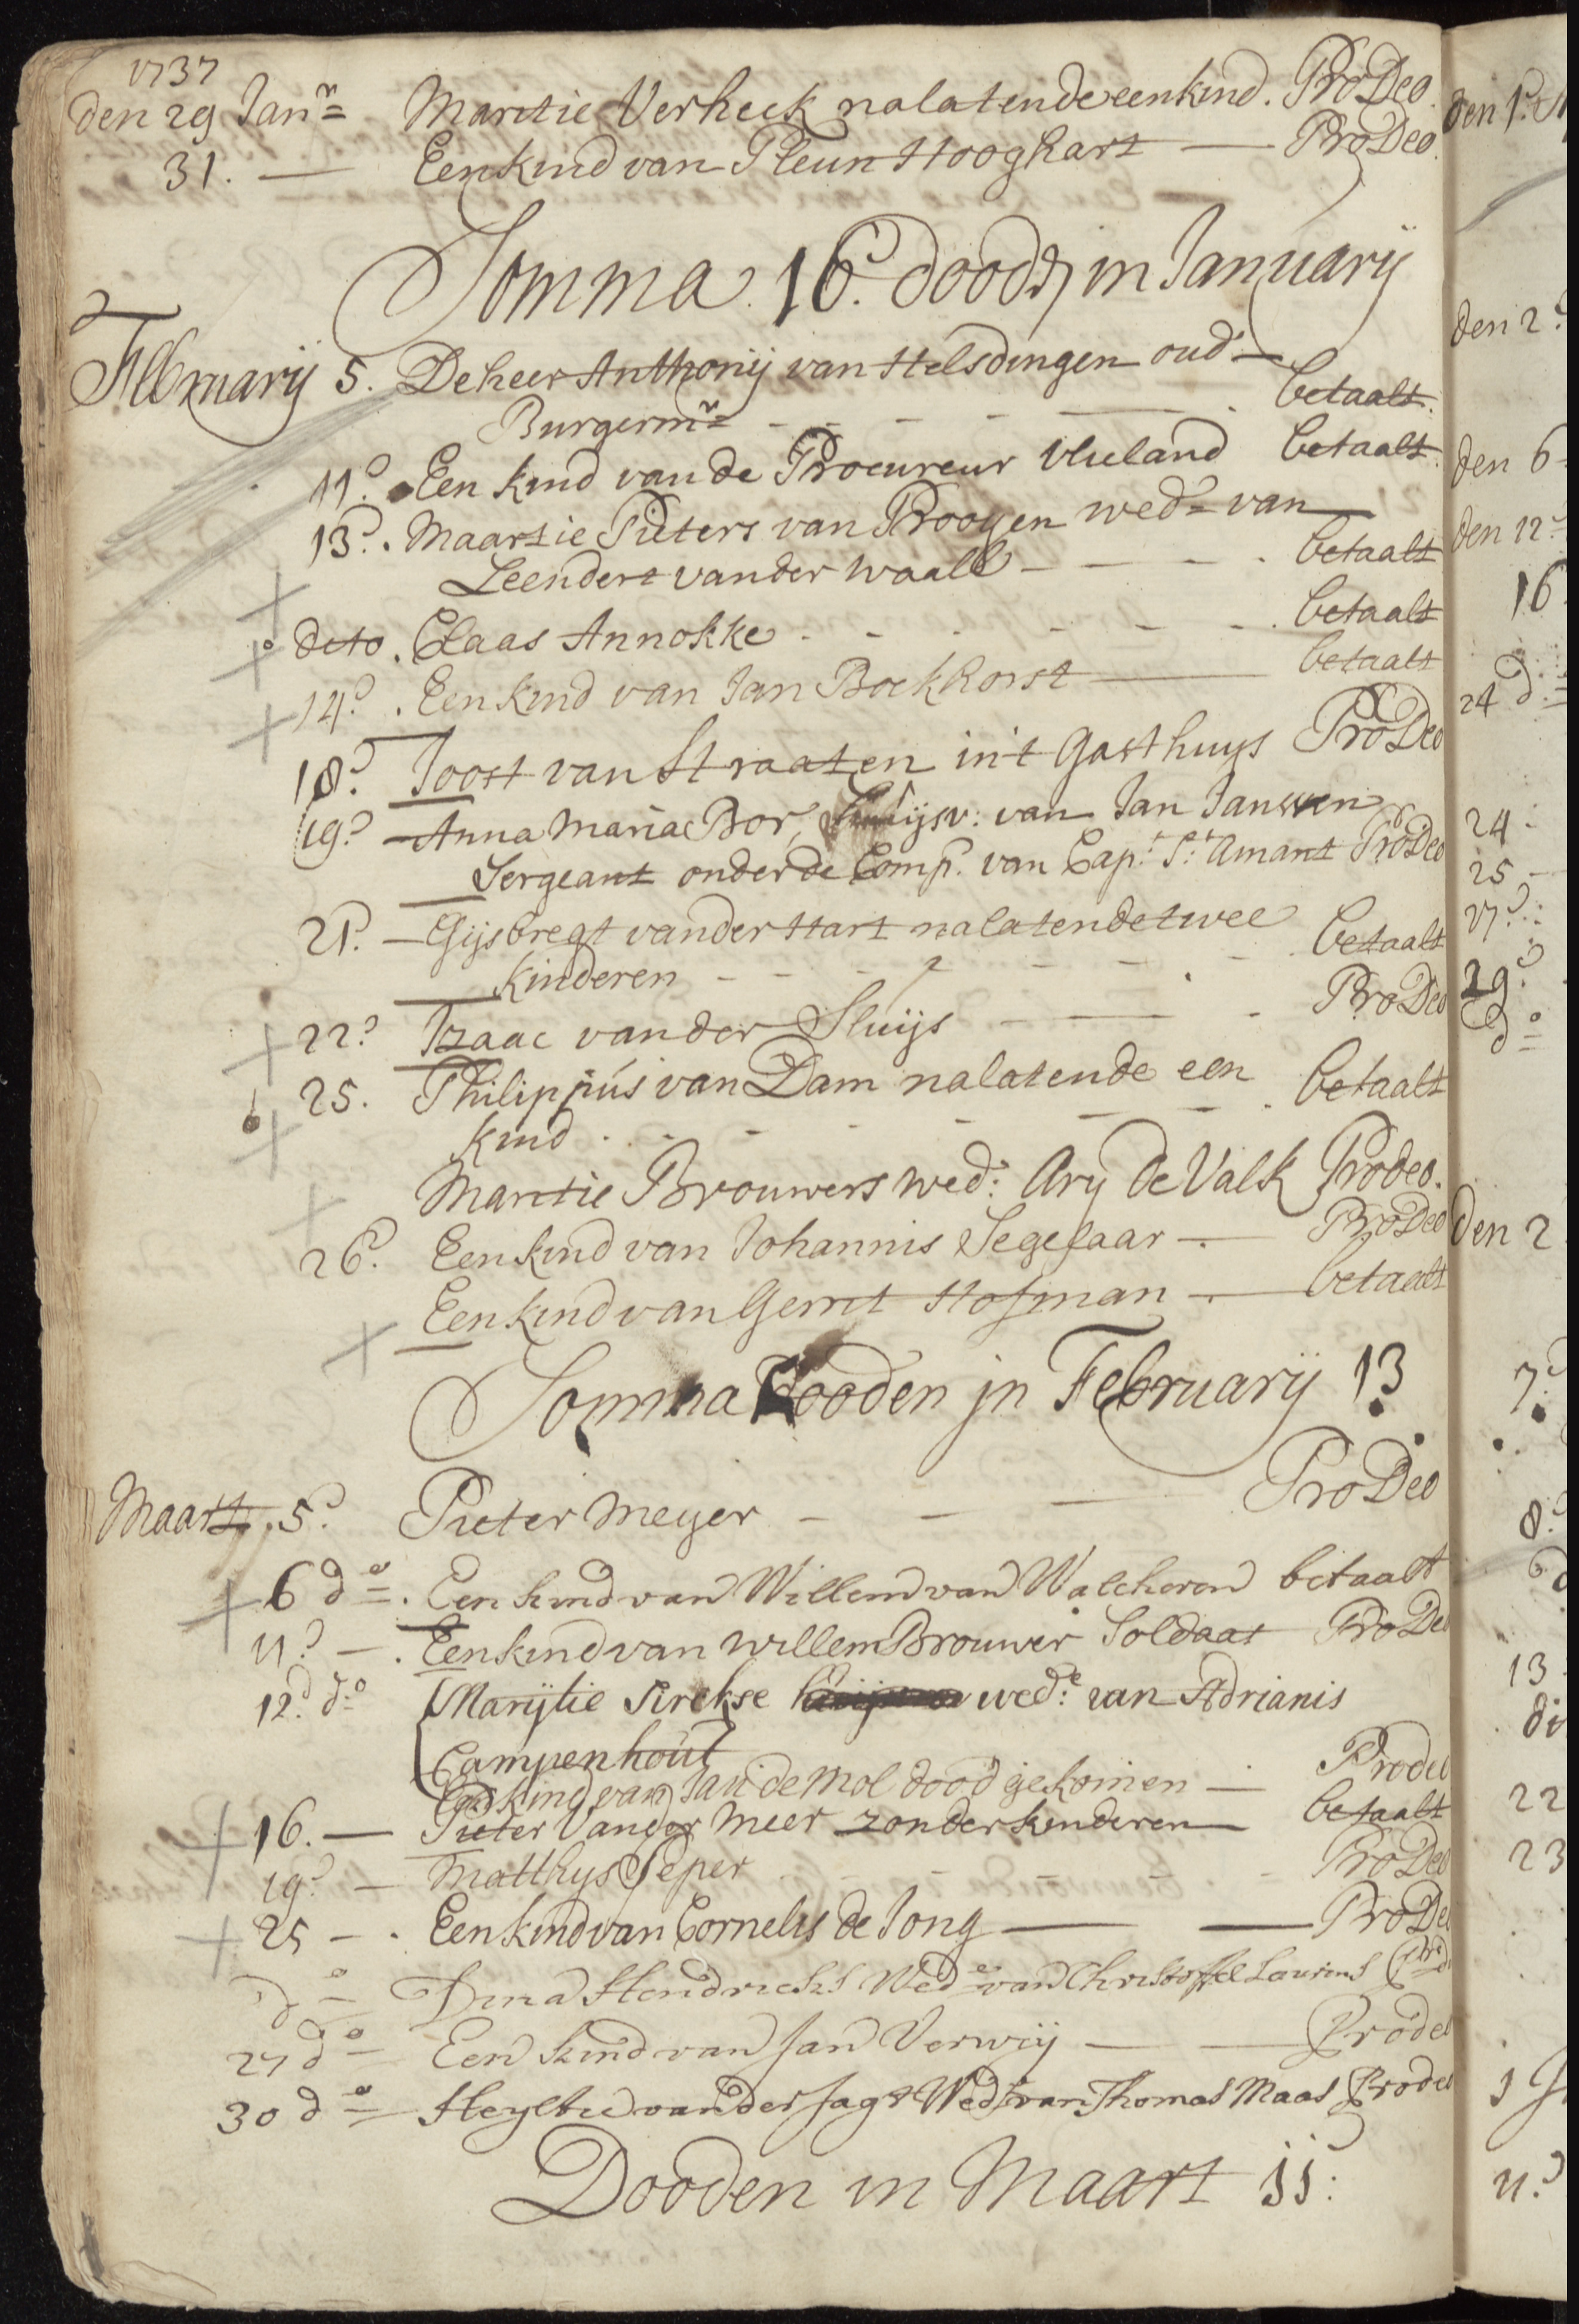 1737
den 29 Janr= Maritie Verheek nalatende een kind. Pro Deo.
31. — Een kind van Pleun Hooghart — Pro Deo.
Somma. 16. doodn in January
February 5. De heer Anthonij van Helsdingen oud
Burgermr= - - - - betaalt.
11d. Een kind van de Procureur Vlieland betaalt.
13d. Maartie Pieters van Prooyen wed= van
Leendert vander Waall - - - betaalt
deto. Claas Annokke - - - - betaalt
14d. Een kind van Jan Bockhorst — betaalt
18d. Joost van Straaten in't Gasthuys Pro Deo
19d. Anna Maria Bor, Huijsv: van Jan Janssen
Sergeant onder de Comp. van Capt. St: Amant Pro Deo
21d. — Gijsbregt vander Hart nalatende twee
kinderen - - - - betaalt
22d Izaac vander Sluijs - — - Pro Deo
25. Philippus van Dam nalatende een betaalt
kind . . - - - -
Maritie Brouwers wed: Ary de Valk Prodeo.
26d. Een kind van Johannis Segelaar — Pro Deo
Een kind van Gerrit Hofman — betaalt
Somma Dooden jn February 13
Maart. 5d. Pieter Meyer - - — Pro Deo
6 do=. Een kind van Willem van Walcheren betaalt
11d. — . Een kind van Willem Brouwer Soldaat Pro De
12d. do Marijtie Sirekse wede: van Adrianis
Campenhout
Een kind van Jan de Mol dood gekomen — Prode
16. — Pieter Vander Meer zonder kinderen betaalt
19d. — Matthys Seper - - - Pro Deo
25 - . Een kind van Cornelis de Jong — — Pro De
do= Dina Hendricks Wede= van Christoffel Laurens Prod
27 do= Een kind van Jan Verwij — — Prode
30 do= Heyltie vander Jagt Wed van Thomas Maas Prode
Dooden in Maart 11:
den 1d.
den 2d
den 6
den 12d
16
24 do=
24
25
27d.
29d.
do=
den 2
7d.
8d.
13
22
23
11d.